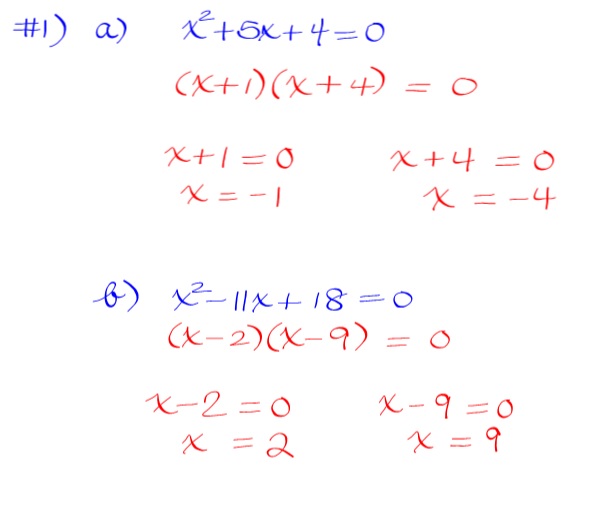 #1) a) x²+5x+4=0
(x+1)(x+4) = 0
x+1=0 x+4 =0
x=-1 x =-4
b) x²-11x+18=0
(x-2)(x-9) = 0
x-2=0 x-9=0
x =2 x =9